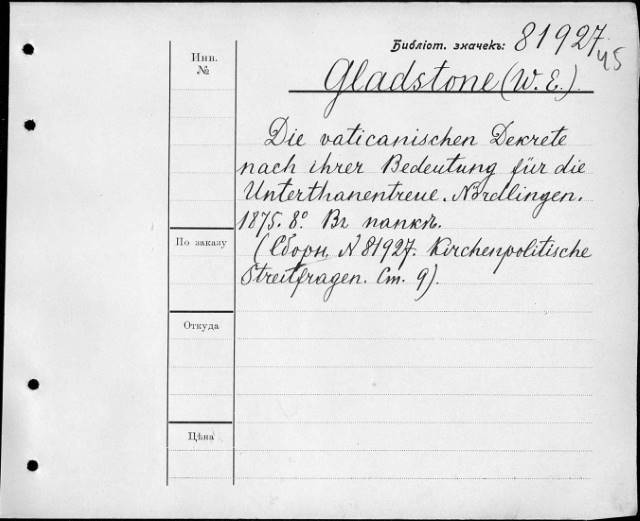 Библіот. значекъ: 81927
45
Инв.
№
Gladstone (W. E.).
Die vaticanischen Dekrete
nach ihrer Bedeutung für die
Unterthanentreue. Nördlingen.
1875. 8º. Въ папкѣ.
По заказу
(Сборн. № 81927. Kirchenpolitische
Streitfragen. Ст. 9).
Откуда
Цѣна